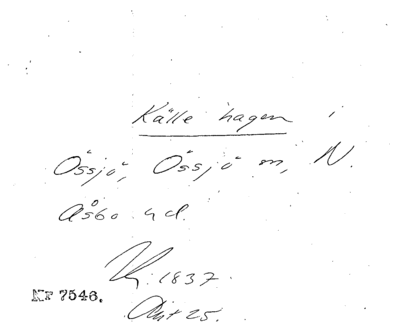 Källe hagen i
Össjö, Össjö sn, N.
Åsbo hd.
1837.
Akt 25.
Nr 7546.